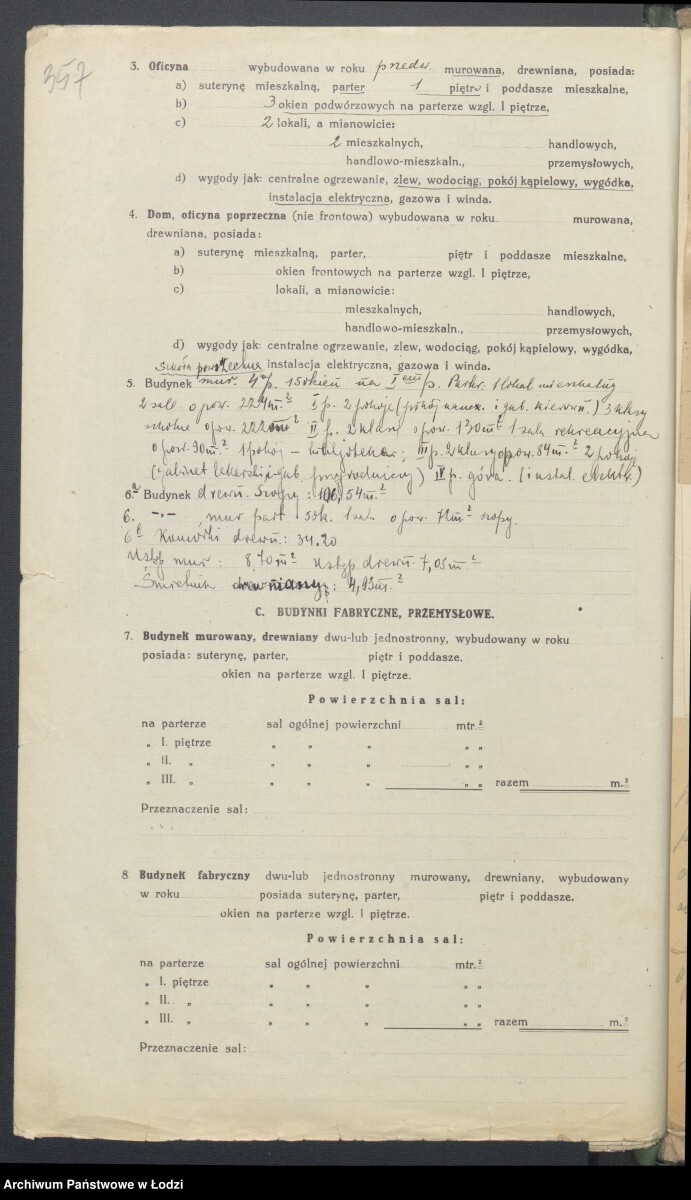 357
3. Oficyna wybudowana w roku przedw. murowana, drewniana, posiada:
a) suterynę mieszkalną, parter 1 piętro i poddasze mieszkalne,
b) 3 okien podwórzowych na parterze wzgl. I piętrze,
c) 2 lokali, a mianowicie:
2 mieszkalnych, handlowych,
handlowo-mieszkaln., przemysłowych,
d) wygody jak: centralne ogrzewanie, zlew, wodociąg, pokój kąpielowy, wygódka,
instalacja elektryczna, gazowa i winda.
4. Dom, oficyna poprzeczna (nie frontowa) wybudowana w roku murowana,
drewniana, posiada:
a) suterynę mieszkalną, parter, piętr i poddasze mieszkalne,
b) okien frontowych na parterze wzgl. I piętrze,
c) lokali, a mianowicie:
mieszkalnych, handlowych,
handlowo-mieszkaln., przemysłowych,
d) wygody jak: centralne ogrzewanie, zlew, wodociąg, pokój kąpielowy, wygódka,
Szkoła powszechna instalacja elektryczna, gazowa i winda.
5. Budynek mur. 4 p. 15 okien na I p. Parter. 1 lokal mieszkalny
2 sale o pow. 224 m.² I p. 2 pokoje (pokój naucz. i gab. kierown.) 3 klasy
szkolne o pow. 222 m² II p. 2 klasy o pow. 130 m² 1 sala rekreacyjna
o pow. 90 m.² 1 pokój – bibljoteka; III p. 2 klasy o pow. 84 m.² 2 pokoj
(gabinet lekarski i gab. przyrodniczy) IV p. góra. (instal. elektr.)
6.ª Budynek drewn. Szopy: 106,54 m.²
6. -"- , mur part. 5 ok. 1 sala o pow. 72 m² szopy.
6 b Komórki drewn.: 34.20
Ustęp mur: 8,70 m² Ustęp drewn. 7,05 m.²
Śmietnik drewniany: 4,93 m.²
C. BUDYNKI FABRYCZNE, PRZEMYSŁOWE.
7. Budynek murowany, drewniany dwu-lub jednostronny, wybudowany w roku
posiada: suterynę, parter, piętr i poddasze.
okien na parterze wzgl. I piętrze.
Powierzchnia sal:
na parterze sal ogólnej powierzchni mtr.²
„ I. piętrze „ „ „ „ „
„ II. „ „ „ „ „ „
„ III. „ „ „ „ „ „ razem m.²
Przeznaczenie sal:
8 Budynek fabryczny dwu-lub jednostronny murowany, drewniany, wybudowany
w roku posiada suterynę, parter, piętr i poddasze.
okien na parterze wzgl. I piętrze.
Powierzchnia sal:
na parterze sal ogólnej powierzchni mtr.²
„ I. piętrze „ „ „ „ „
„ II. „ „ „ „ „ „
„ III. „ „ „ „ „ „ razem m.²
Przeznaczenie sal:
Archiwum Państwowe w Łodzi